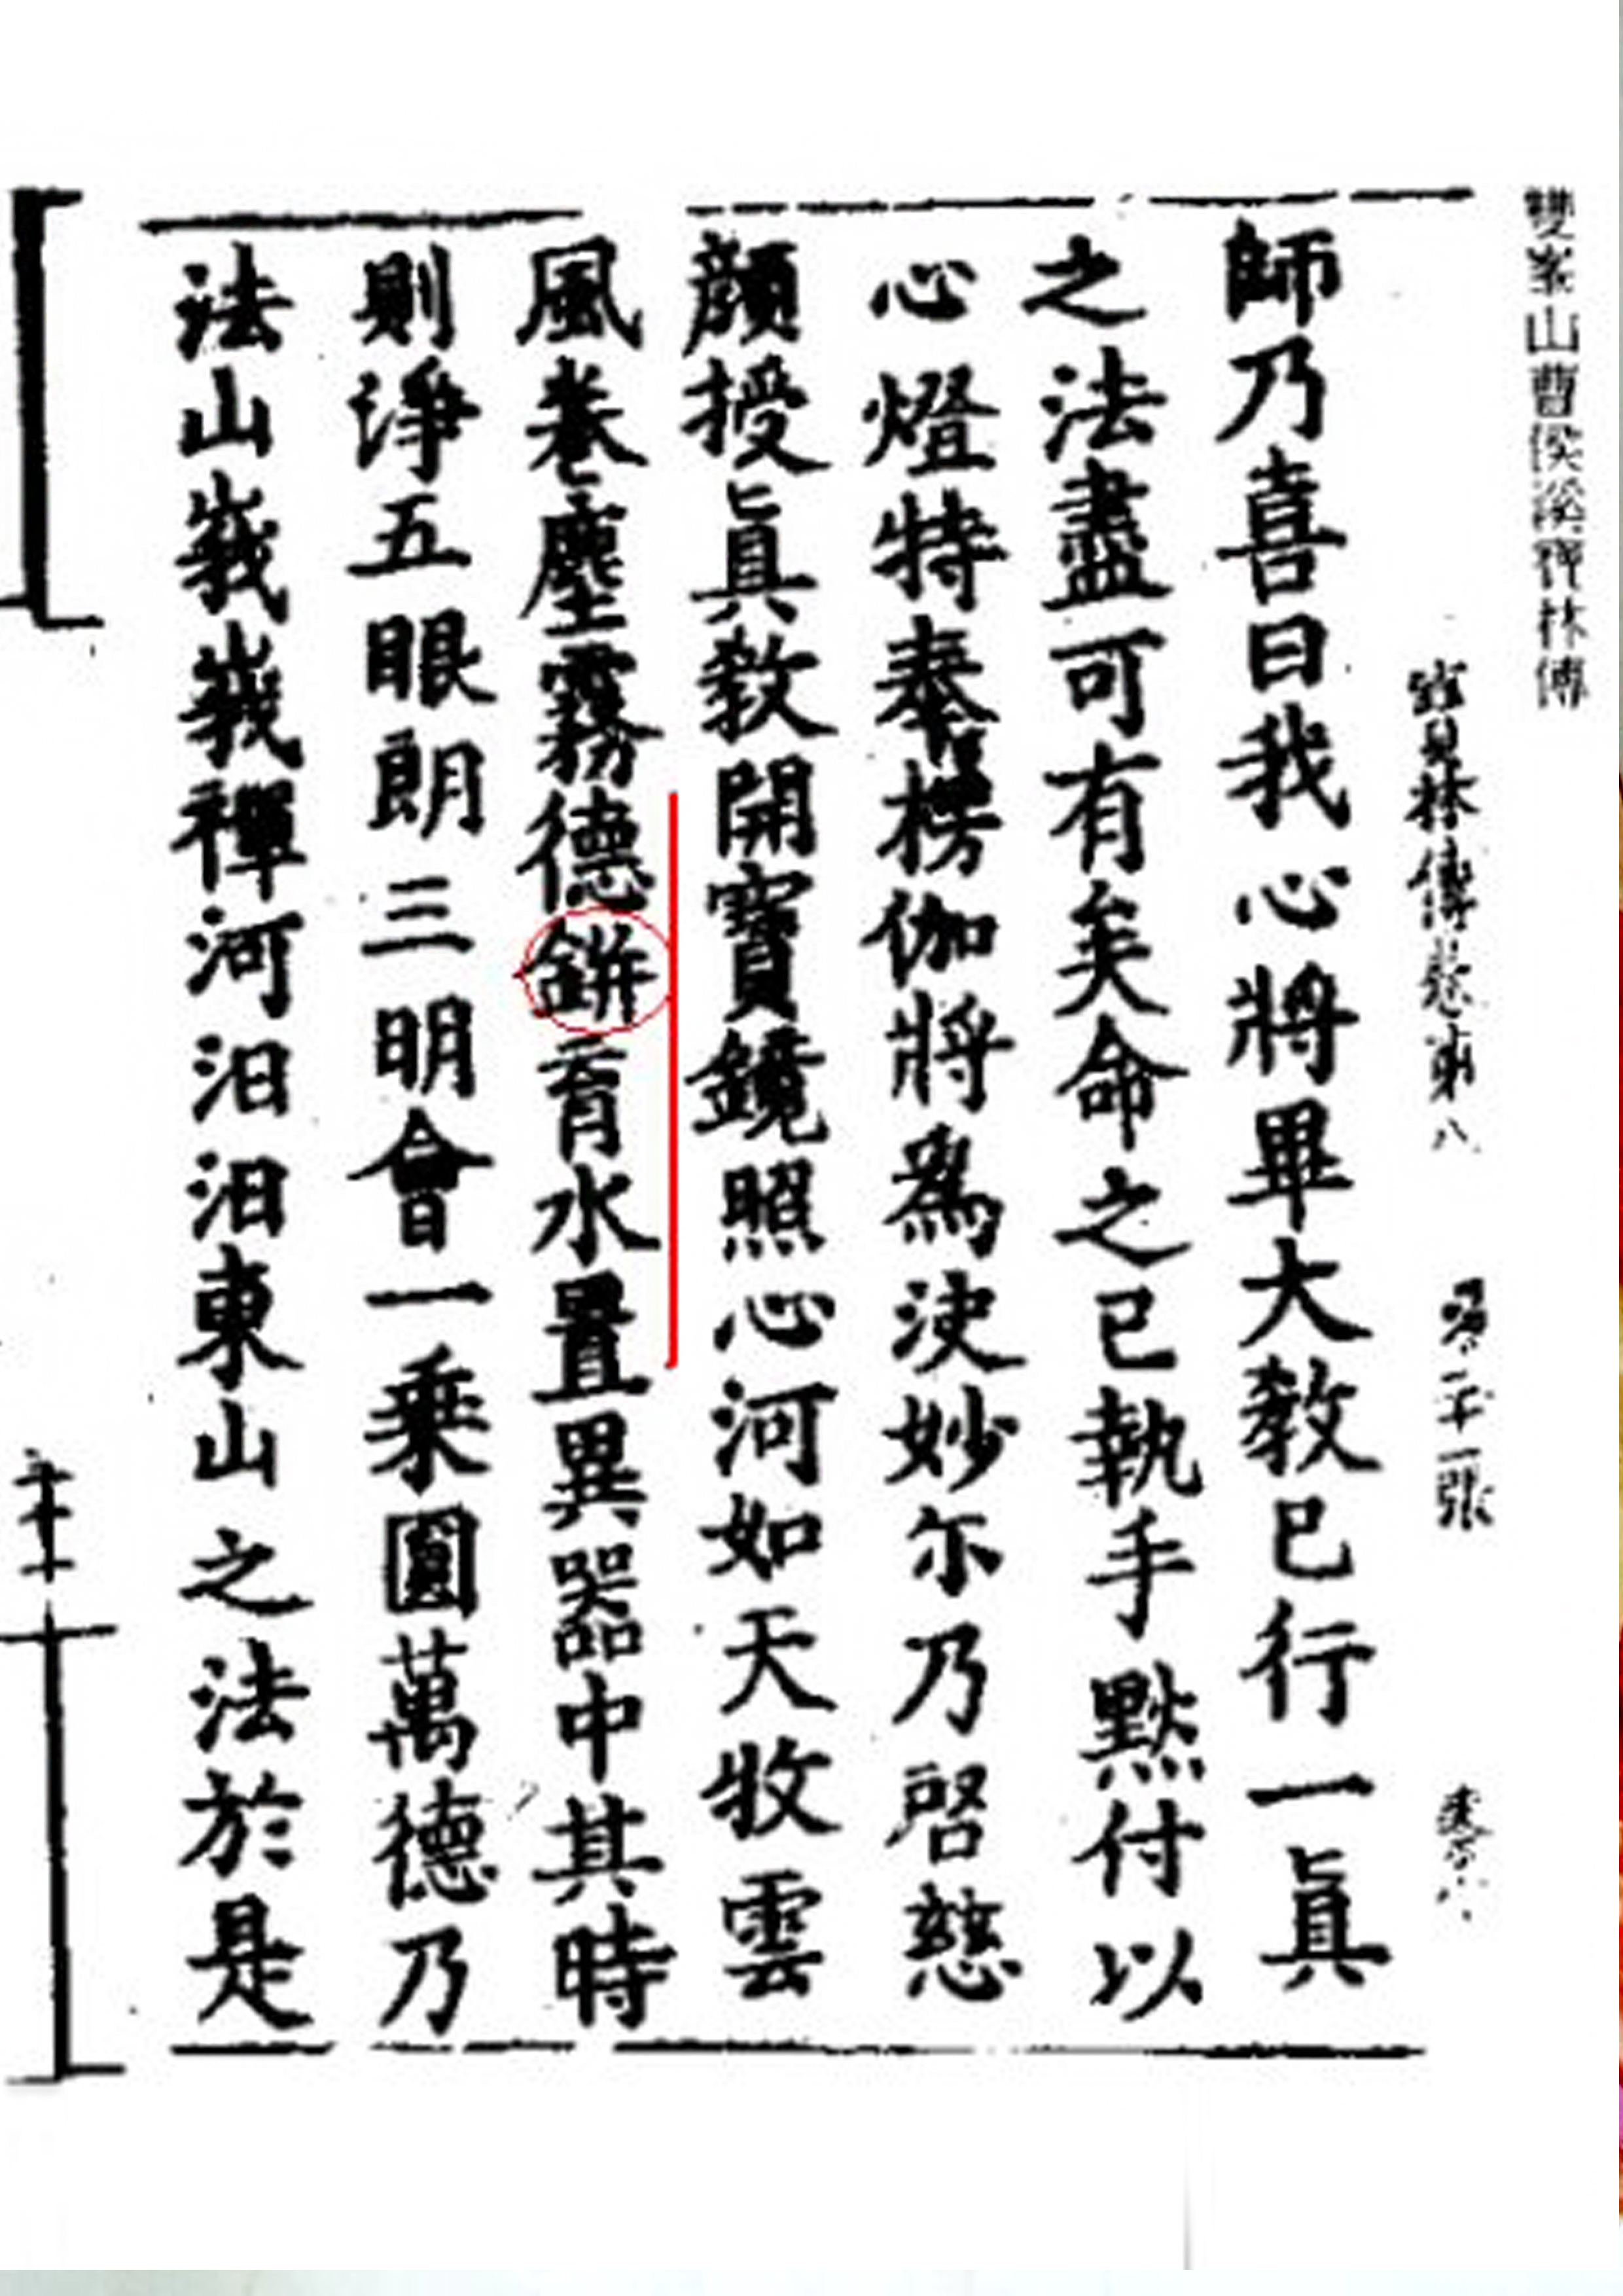 雙峯山曹侯溪寶林傳
寶林傳卷第八 第二十一張 秦字八
師乃喜曰我心將畢大教已行一眞
之法盡可有矣命之已執手黙付以
心燈特奉楞伽將爲決妙尓乃啓慈
顔授眞教開寶鏡照心河如天牧雲
風卷塵霧德鉼育水置異器中其時
則淨五眼朗三明會一乗圓萬德乃
法山峩峩禪河汨汨東山之法於是